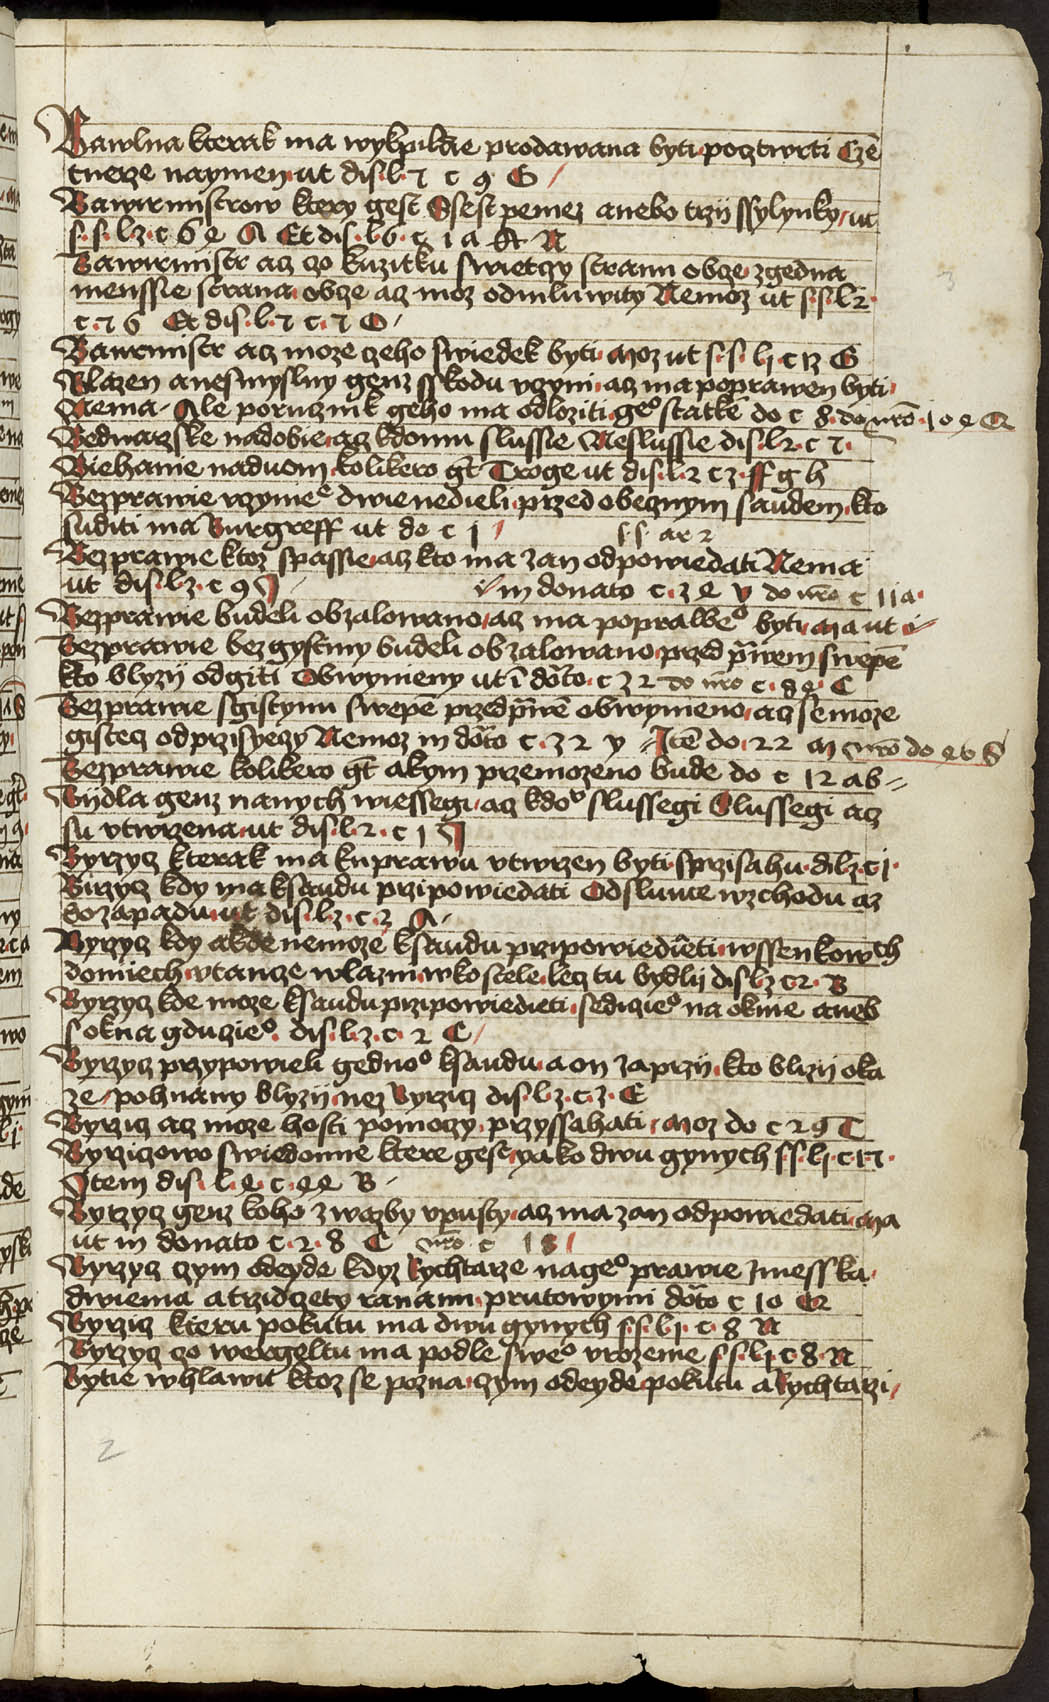 Bawlna kterak ma wykpildie prodawana byti pocztwrti Czē
tnerze naymen ut dis· l· 7 c 9 G
Bawrmistrow ktery gest Ssest penez anebo trzij ssylynky ut
s· s· l z· c 6 e A Et dis· l 6· c 1 a & N
Bawrmistr acz czo kuzitku swietczy strann obcze zgedna
menssie strana obcze acz moz odmluwity Nemoz ut s· s· l 2·
c· 7 6 Et dis· l· 7 c· 7 O
Bawrmistr acz moze czeho swiedek byti Moz ut s· s· l j c 12 G
Blazen anesmyslny genz sskodu vczyni acz ma poprawen byti
Nema· Ale porucznik geho ma odloziti ge° statkē do c 8· do nr̄o· 10 e Q
Bednarzske nadobie acz kdomu slussie Neslussie dis· l 2· c 7·
Biehanie naduom kolikero gt̄ Troge ut dis· l· 2 c z· ff g h
Bezprawie vczynie° dwie nedieli przed obecznym saudem kto
suditi ma Burgreff ut do c j
s s ar 2
Bezprawie ktoz spassie acz kto ma zan odpowiedati Nema
ut dis· l z· c 9
in donato c· z e y do nr̄o c 11 a·
Bezprawie budeli obzalowano acz ma poprawe° byti Ma ut
Bezprawie bez gystiny budeli obzalowano przed prawem swepē
kto blyzij odgiti Obwynieny ut ī dāto· c z 2 do nr̄o c· 9 e· C
Bezprawie sgistynu swepē przed prawē obwyneno acz se moze
gistecz odprzisyeczy Nemoz in dāto c· z 2 y Itē do· 22 m nr̄o do e 6 S
Bezprawie kolikero gt̄ akym przemozeno bude do c 12 ab
Bydla genz nanych wiessegi acz kdo° slussegi Slussegi acz
su vtwrzena ut dis· l· 2· c 1
Byrzycz kterak ma kuprawu vtwrzen byti sprzisahu· d l z· c j·
Birzycz kdy ma ksaudu przipowiedati Od slunce wzchodu az
do zapadu ut dis· l z· c· 2 A
Byrzycz kdy akde nemoze ksaudu przipowiedieti wssenkowch
domiech vtancze wlazni wkostele lecz tu bydlij dis l z c 2· B
Byrzycz kde moze ksaudu przipowiedieti sediczie° na oknie aneb
s okna gduczie°· dis· l· z· c· 2 C
Byrzycz przypowieli gedno° ksaudu a on zaprzij kto blizij oka
ze pohnany blyzij nez Byrzicz dis· l· z· c· z· E
Byrzicz acz moze hosti pomoczy przyssahati Moz do c 29 T
Byrziczowo swiedomie ktere gest yako dwu gynych s s· l j· c 17·
Item dis· l· e· c· e e B
Byrzycz genz koho z wazby vpusty acz ma zan odpowiedati Ma
ut in donato c· 2· 8 C nr̄o c 1 8
Byrzycz czym odeyde kdyz Rychtarze nage° prawie zmesska
dwiema a trzidczety ranami prutowymi dāto c 10 Q
Byrzicz kteru pokutu ma dwu gynych s· s· l j· c· 8 N
Byrzycz czo wergeltu ma podle swe° vrozenie s s· l j c 8· N
Bytie whlawu ktoz se pozna czym odeyde pokutu a Rychtarzi
2